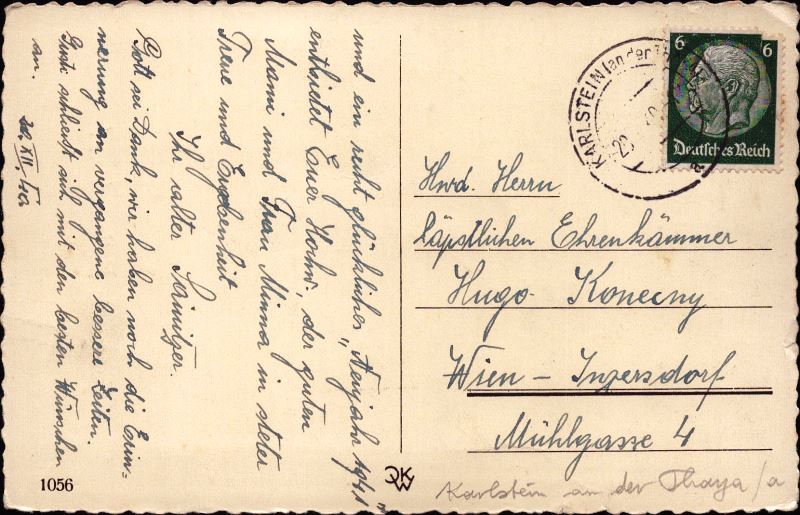 und ein recht glückliches „Neujahr 1941"
entbietet Euer Hochw., der guten
Mami und Frau Minna in steter
Treue und Ergebenheit
Ihr alter
Gott sei Dank, wir haben noch die Erin-
nerung an vergangene bessere Zeiten.
Gusti schließt sich mit den besten Wünschen
an.
22. XII. 1940
1056
KARLSTEIN (an der
6
6
Deutsches Reich
Hwd. Herrn
päpstlichen Ehrenkämmer
Hugo Konecny
Wien - Inzersdorf
Mühlgasse 4
Karlstein an der Thaya/a